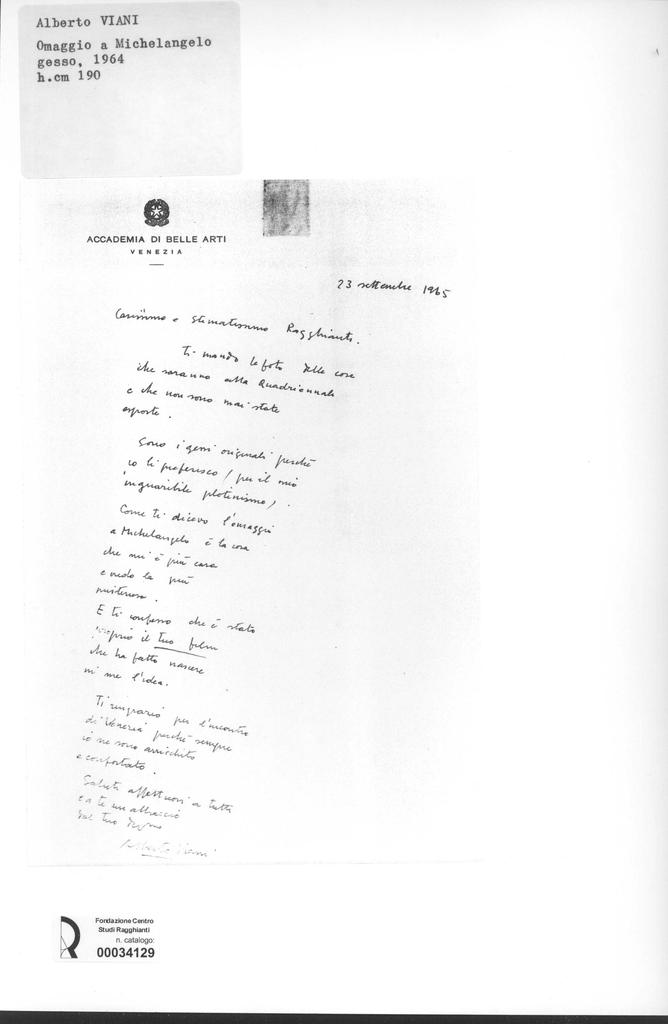 Alberto VIANI
Omaggio a Michelangelo
gesso, 1964
h.cm 190
ACCADEMIA DI BELLE ARTI
VENEZIA
23 settembre 1965
Carissimo e stimatissimo Ragghianti.
Ti mando le foto delle cose
che saranno alla Quadriennale
e che non sono mai state
esposte.
Sono i gessi originali perché
io li preferisco (per il mio
inguaribile plotinismo).
Come ti dicevo l'omaggio
a Michelangelo è la cosa
che mi è più cara
e credo la più
misteriosa.
E ti confesso che è stato
proprio il tuo film
che ha fatto nascere
in me l'idea.
Ti ringrazio per l'incontro
di Venezia perché sempre
io ne sono arricchito
e confortato.
Saluti affettuosi a tutti
e a te un abbraccio
dal tuo
Alberto Viani
Fondazione Centro
Studi Ragghianti
n. catalogo:
00034129